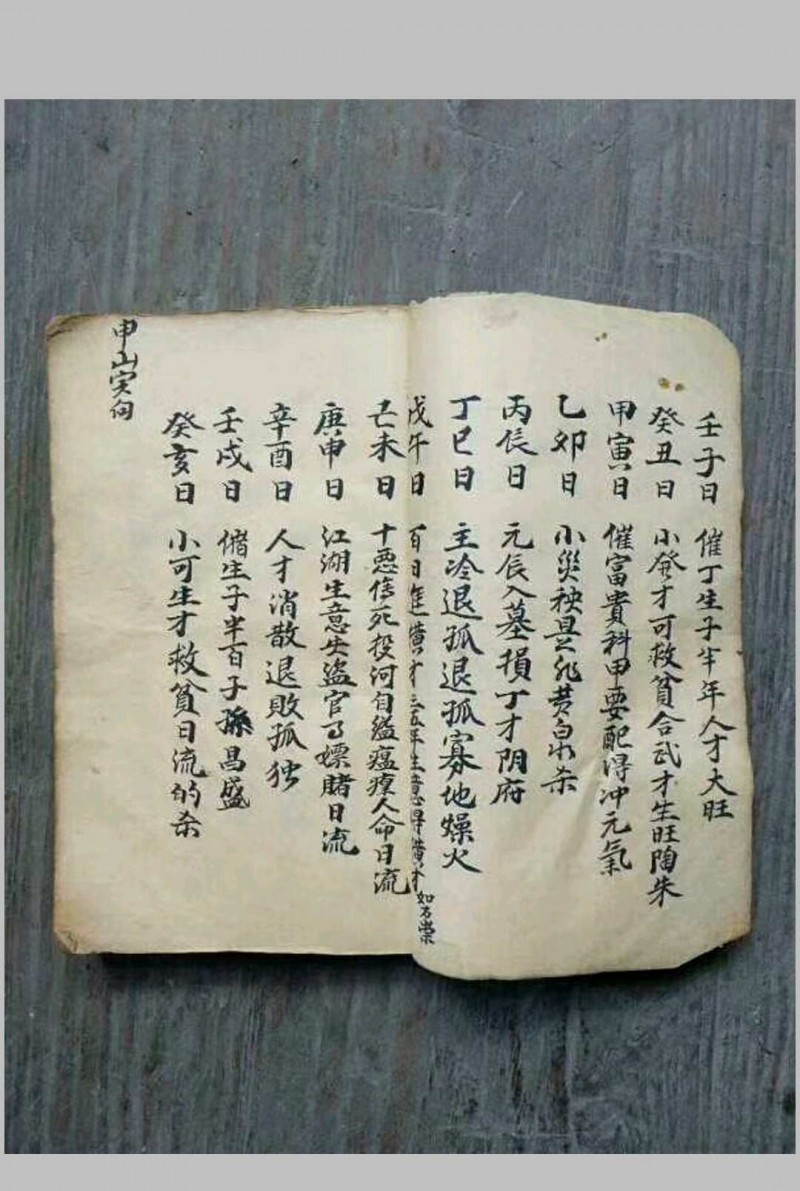 壬子日 催丁生子半年人才大旺
癸丑日 小發才可救貧合武才生旺陶朱
甲寅日 催富貴科甲要配得冲元氣
乙卯日 小災秧是非黄白水杀
丙辰日 元辰入墓損丁才阴府
丁巳日 主冷退孤退孤寡地燥火
戊午日 百日進横才三五年生意得横才如石崇
己未日 十悪信死投河自縊瘟𤺥人命日流
庚申日 江湖生意失盗官司嫖賭日流
辛酉日 人才消散退敗孤独
壬戌日 偹生子半百子孫昌盛
癸亥日 小可生才救貧日流的杀
申山寅向